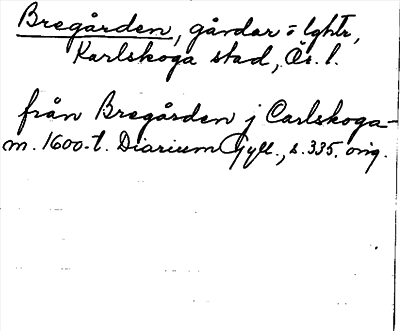 Bregården, gårdar o lghtr,
Karlskoga stad, Ös. l.
från Bregården j Carlskoga
m. 1600-t. Diarium Gyll., s. 335. orig.